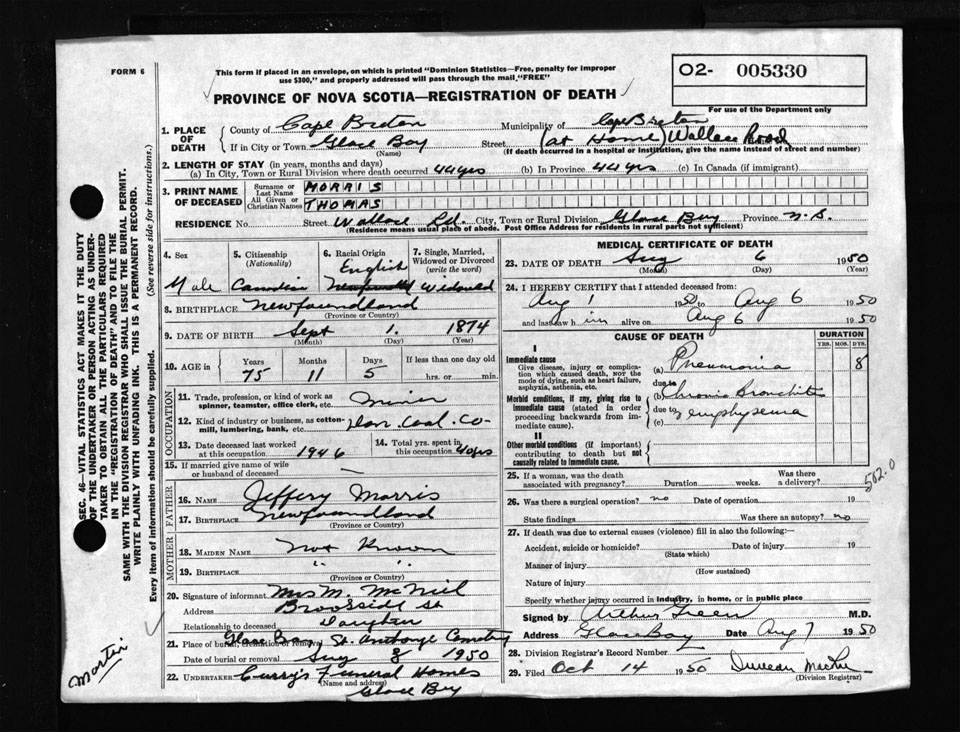 FORM 6
This form if placed in an envelope, on which is printed "Dominion Statistics—Free, penalty for improper
use $300," and properly addressed will pass through the mail, "FREE"
PROVINCE OF NOVA SCOTIA—REGISTRATION OF DEATH
O2- 005330
For use of the Department only
SEC. 46—VITAL STATISTICS ACT MAKES IT THE DUTY
OF THE UNDERTAKER OR PERSON ACTING AS UNDER-
TAKER TO OBTAIN ALL THE PARTICULARS REQUIRED
IN THE "REGISTRATION OF DEATH" AND TO FILE THE
SAME WITH THE DIVISION REGISTRAR WHO SHALL ISSUE THE BURIAL PERMIT.
WRITE PLAINLY WITH UNFADING INK. THIS IS A PERMANENT RECORD.
Every item of information should be carefully supplied. (See reverse side for instructions.)
Martin
1. PLACE OF DEATH
County of Cape Breton Municipality of Cape Breton
If in City or Town Glace Bay Street (at Home) Wallace Road
(Name) (If death occurred in a hospital or institution, give the name instead of street and number)
2. LENGTH OF STAY (in years, months and days)
(a) In City, Town or Rural Division where death occurred 44 yrs (b) In Province 44 yrs (c) In Canada (if immigrant)
3. PRINT NAME OF DECEASED
Surname or Last Name MORRIS
All Given or Christian Names THOMAS
RESIDENCE No. Street Wallace Rd. City, Town or Rural Division Glace Bay Province N.S.
(Residence means usual place of abode. Post Office Address for residents in rural parts not sufficient)
4. Sex Male
5. Citizenship (Nationality) Canadian
6. Racial Origin English
7. Single, Married, Widowed or Divorced (write the word) Widowed
8. BIRTHPLACE Newfoundland
(Province or Country)
9. DATE OF BIRTH Sept 1. 1874
(Month) (Day) (Year)
10. AGE in Years 75 Months 11 Days 5 If less than one day old hrs. or min.
OCCUPATION
11. Trade, profession, or kind of work as spinner, teamster, office clerk, etc. Miner
12. Kind of industry or business, as cotton-mill, lumbering, bank, etc. Dom. Coal. Co-
13. Date deceased last worked at this occupation 1946
14. Total yrs. spent in this occupation 40 yrs
15. If married give name of wife or husband of deceased —
FATHER
16. NAME Jeffery Morris
17. BIRTHPLACE Newfoundland
(Province or Country)
MOTHER
18. MAIDEN NAME Not Known
19. BIRTHPLACE " "
(Province or Country)
20. Signature of informant Mrs M. McNeil
Address Brookside St
Relationship to deceased Daughter
21. Place of burial, cremation or removal Glace Bay St. Anthonys Cemetery
Date of burial or removal Aug 8 1950
22. UNDERTAKER Curry's Funeral Homes
(Name and address)
Glace Bay
MEDICAL CERTIFICATE OF DEATH
23. DATE OF DEATH Aug 6 1950
(Month) (Day) (Year)
24. I HEREBY CERTIFY that I attended deceased from:
Aug 1 1950 to Aug 6 1950
and last saw him alive on Aug 6 1950
CAUSE OF DEATH
DURATION
YRS. MOS. DYS.
I
Immediate cause
Give disease, injury or complication which caused death, NOT the mode of dying, such as heart failure, asphyxia, asthenia, etc.
(a) Pneumonia 8
due to
Morbid conditions, if any, giving rise to immediate cause (stated in order proceeding backwards from immediate cause).
(b) Chronic Bronchitis
due to & emphysema
(c)
II
Other morbid conditions (if important) contributing to death but not causally related to immediate cause.
25. If a woman, was the death associated with pregnancy? Duration weeks. Was there a delivery?
502.0
26. Was there a surgical operation? no Date of operation 19
State findings Was there an autopsy? no
27. If death was due to external causes (violence) fill in also the following:
Accident, suicide or homicide? Date of injury 19
(State which)
Manner of injury
(How sustained)
Nature of injury
Specify whether injury occurred in industry, in home, or in public place
Signed by Arthur Green M.D.
Address Glace Bay Date Aug 7 1950
28. Division Registrar's Record Number
29. Filed Oct 14 1950 Duncan
(Division Registrar)